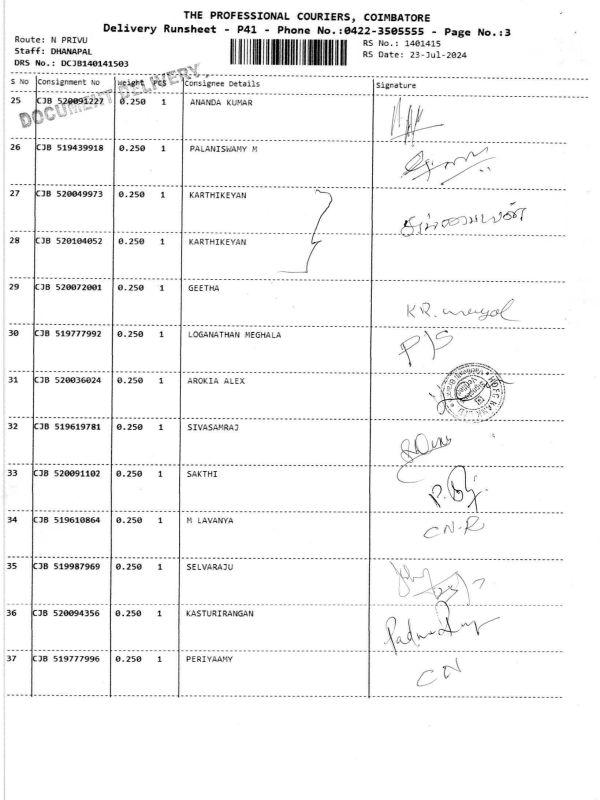 THE PROFESSIONAL COURIERS, COIMBATORE
Delivery Runsheet - P41 - Phone No.:0422-3505555 - Page No.:3
Route: N PRIVU
RS No.: 1401415
Staff: DHANAPAL
RS Date: 23-Jul-2024
DRS No.: DCJB140141503
DOCUMENT DELIVERY
S No Consignment No Weight Pcs Consignee Details Signature
25 CJB 520091227 0.250 1 ANANDA KUMAR
26 CJB 519439918 0.250 1 PALANISWAMY M
27 CJB 520049973 0.250 1 KARTHIKEYAN
28 CJB 520104052 0.250 1 KARTHIKEYAN
29 CJB 520072001 0.250 1 GEETHA
KR.
30 CJB 519777992 0.250 1 LOGANATHAN MEGHALA
P/S
31 CJB 520036024 0.250 1 AROKIA ALEX
HDFC BANK LTD
32 CJB 519619781 0.250 1 SIVASAMRAJ
33 CJB 520091102 0.250 1 SAKTHI
34 CJB 519610864 0.250 1 M LAVANYA
CN-R
35 CJB 519987969 0.250 1 SELVARAJU
36 CJB 520094356 0.250 1 KASTURIRANGAN
37 CJB 519777996 0.250 1 PERIYAAMY
CN